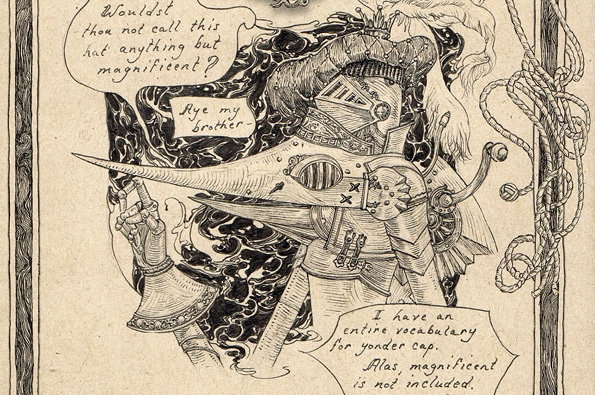 Wouldst
thou not call this
hat anything but
magnificent?
Aye my
brother-
I have an
entire vocabulary
for yonder cap.
Alas, magnificent
is not included.